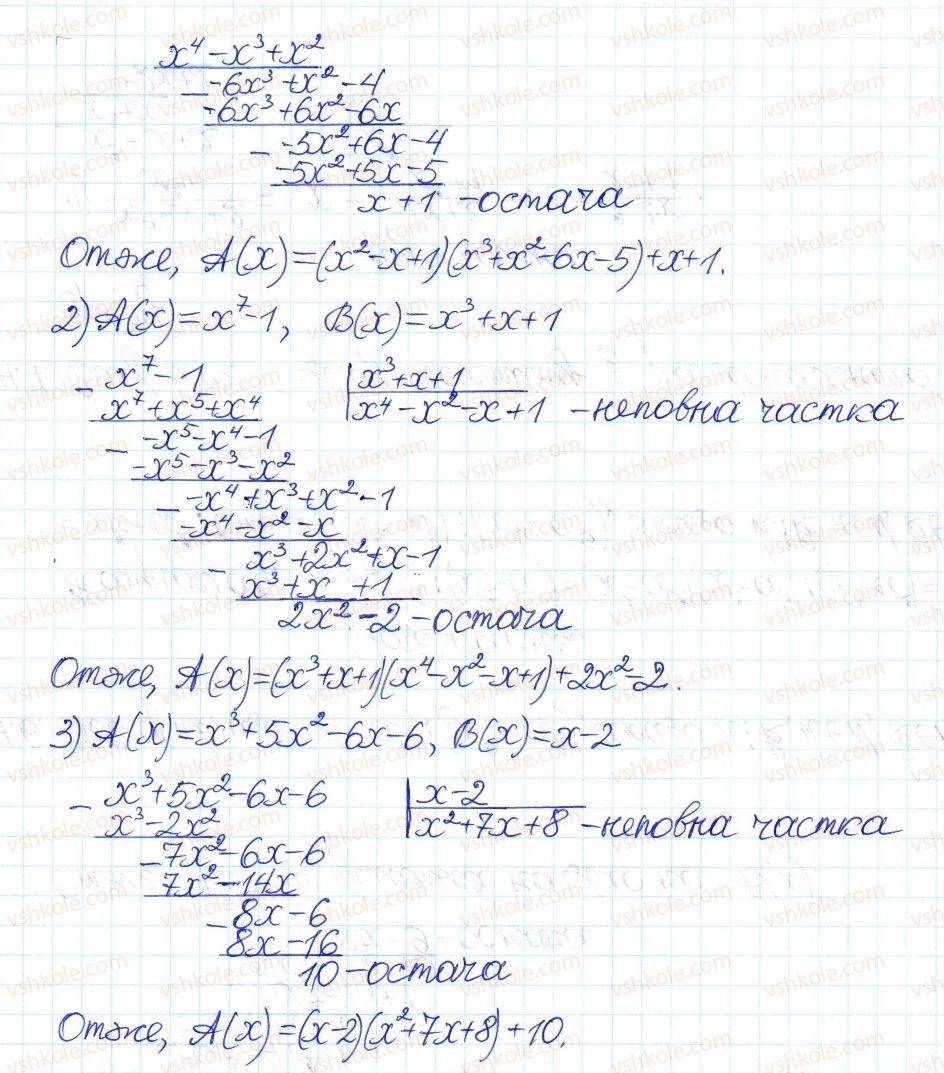 x⁴-x³+x²
- -6x³+x²-4
-6x³+6x²-6x
- -5x²+6x-4
-5x²+5x-5
x+1 -остача
Отже, A(x)=(x²-x+1)(x³+x²-6x-5)+x+1.
2) A(x)=x⁷-1, B(x)=x³+x+1
- x⁷-1 | x³+x+1
x⁷+x⁵+x⁴ | x⁴-x²-x+1 -неповна частка
- -x⁵-x⁴-1
-x⁵-x³-x²
- -x⁴+x³+x²-1
-x⁴-x²-x
- x³+2x²+x-1
x³+x +1
2x²-2 -остача
Отже, A(x)=(x³+x+1)(x⁴-x²-x+1)+2x²-2.
3) A(x)=x³+5x²-6x-6, B(x)=x-2
- x³+5x²-6x-6 | x-2
x³-2x² | x²+7x+8 -неповна частка
- 7x²-6x-6
7x²-14x
- 8x-6
8x-16
10 -остача
Отже, A(x)=(x-2)(x²+7x+8)+10.